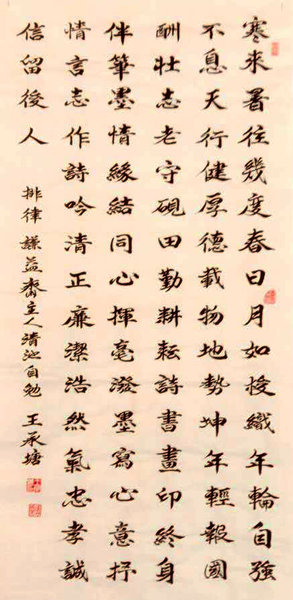 寒來暑往幾度春日月如投織年輪自強
不息天行健厚德載物地勢坤年輕報國
酬壯志老守硯田勤耕耘詩書畫印終身
伴筆墨情緣結同心揮毫潑墨寫心意抒
情言志作詩吟清正廉潔浩然氣忠孝誠
信留後人
排律謙益齋主人清池自勉 王承塘